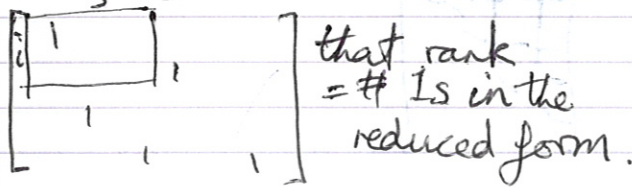 j
i 1
1
1
1 1
that rank
= # 1s in the
reduced form.